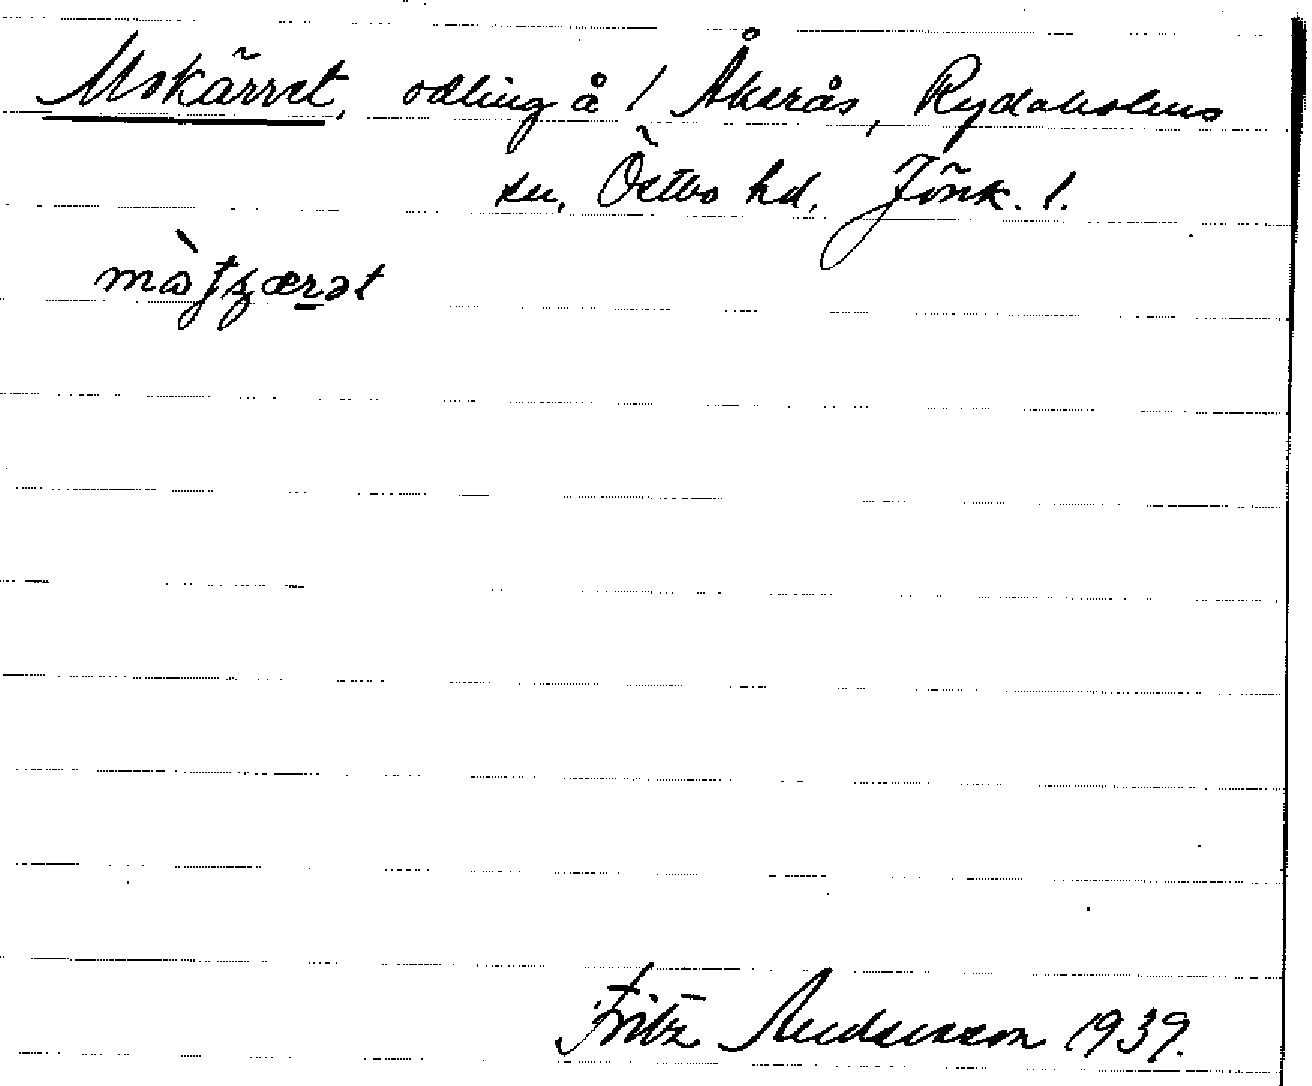 Mokärret, odling å 1 Åkerås, Rydaholms
sn, Östbo hd, Jönk. l.
Fritz Andersson 1939.